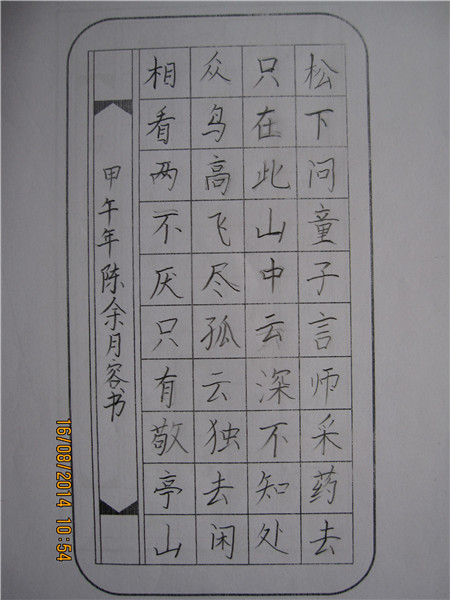 松下问童子言师采药去
只在此山中云深不知处
众鸟高飞尽孤云独去闲
相看两不厌只有敬亭山
甲午年陈余月容书
16/08/2014 10:54